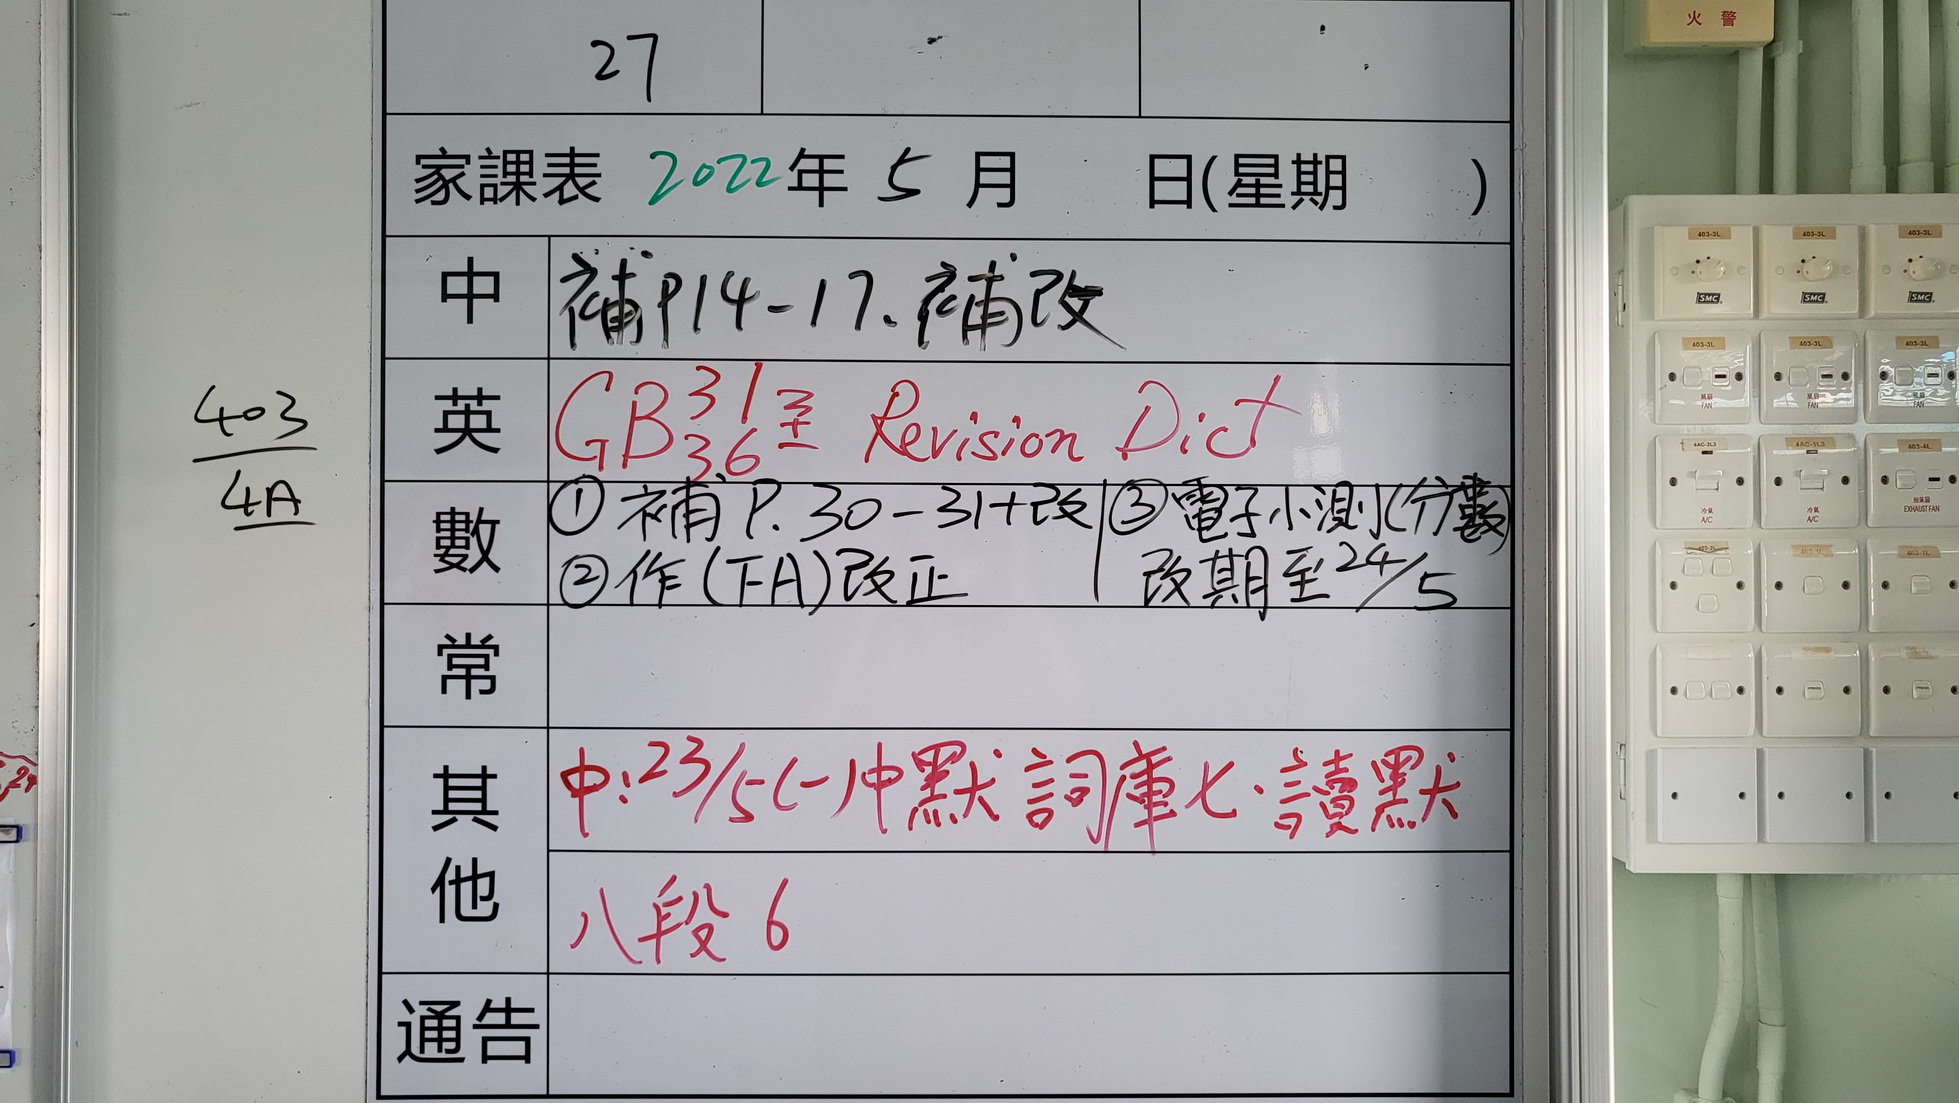 27
家課表 2022年 5 月 日(星期 )
中 補P14-17、補改
英 GB31至36 Revision Dict
數 ①補P.30-31+改 ③電子小測(分數)
②作(下A)改正 改期至24/5
常
其他 中:23/5(一)中默 詞庫七·讀默
八段6
通告
403
4A
火警
403-3L 403-3L 403-3L
SMC SMC SMC
403-3L 403-3L 403-3L
風扇 風扇 風扇
FAN FAN FAN
4AC-1L3 403-4L
冷氣 冷氣 抽氣扇
A/C A/C EXHAUST FAN